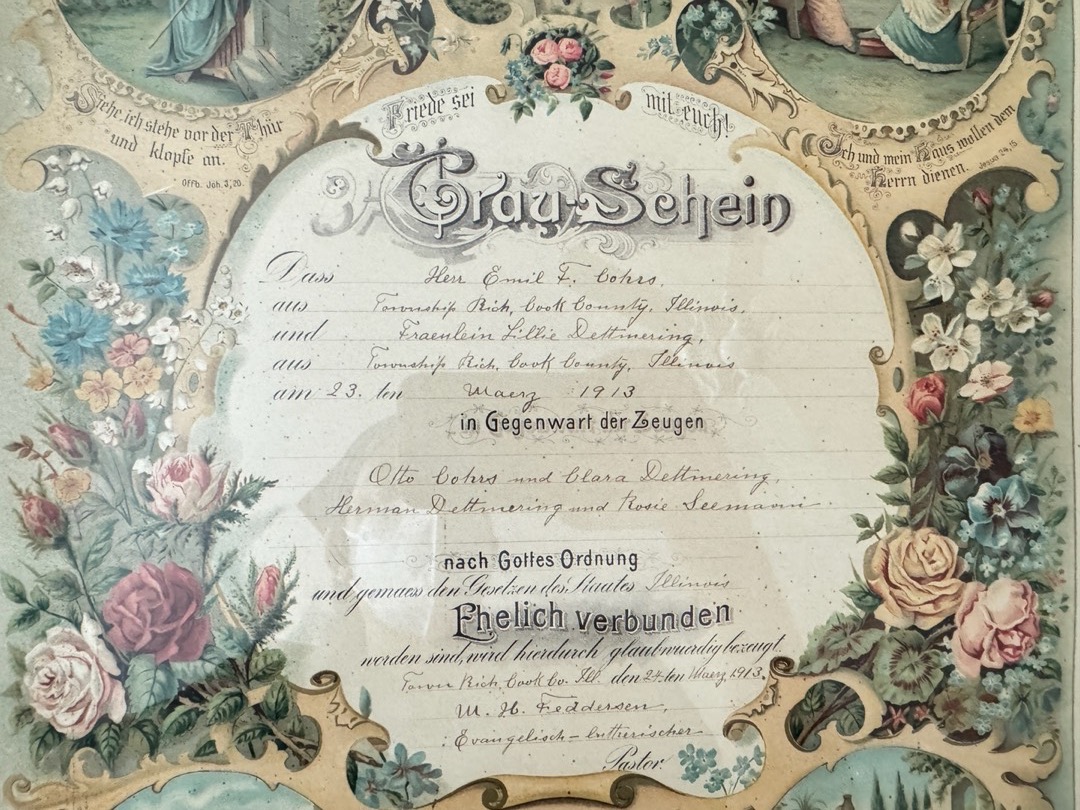 Siehe, ich stehe vor der Thür
und klopfe an.
Offb. Joh. 3, 20.
Friede sei mit euch!
Ich und mein Haus wollen dem
Herrn dienen. Josua 24, 15
Trau-Schein
Dass Herr Emil F. Cohrs,
aus Township Rich, Cook County, Illinois,
und Fraeulein Lillie Dettmering,
aus Township Rich, Cook County, Illinois
am 23. ten Maerz 1913
in Gegenwart der Zeugen
Otto Cohrs und Clara Dettmering,
Herman Dettmering und Rosie Seemann
nach Gottes Ordnung
und gemaess den Gesetzen des Staates Illinois
Ehelich verbunden
worden sind, wird hierdurch glaubwuerdig bezeugt.
Town Rich, Cook Co. Ill. den 24. ten Maerz 1913.
W. H. Feddersen,
Evangelisch-lutherischer
Pastor.